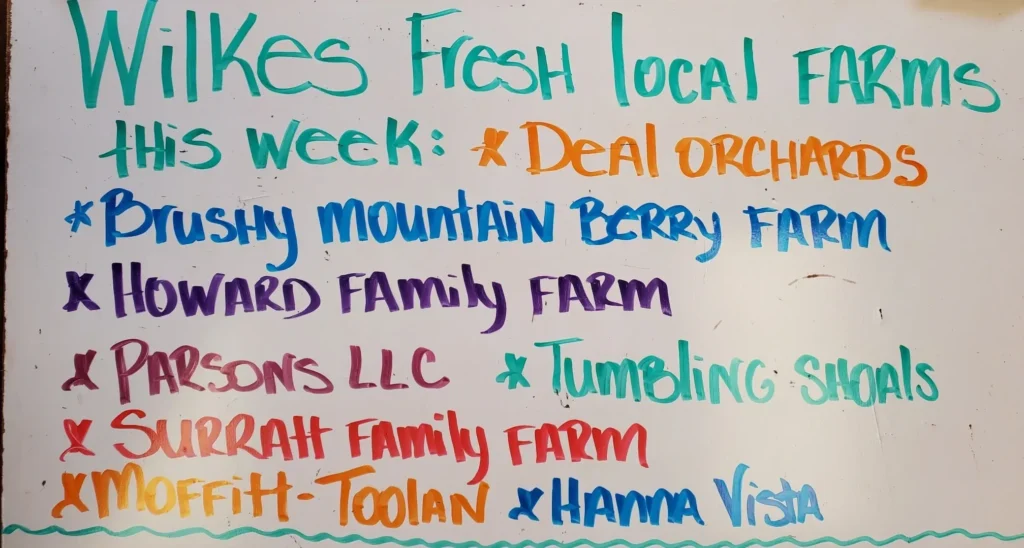 Wilkes Fresh local FARMS
this week: * Deal ORCHARDS
* Brushy Mountain Berry Farm
* Howard Family Farm
* Parsons LLC * Tumbling Shoals
* Surratt Family Farm
* Moffitt-Toolan * Hanna Vista